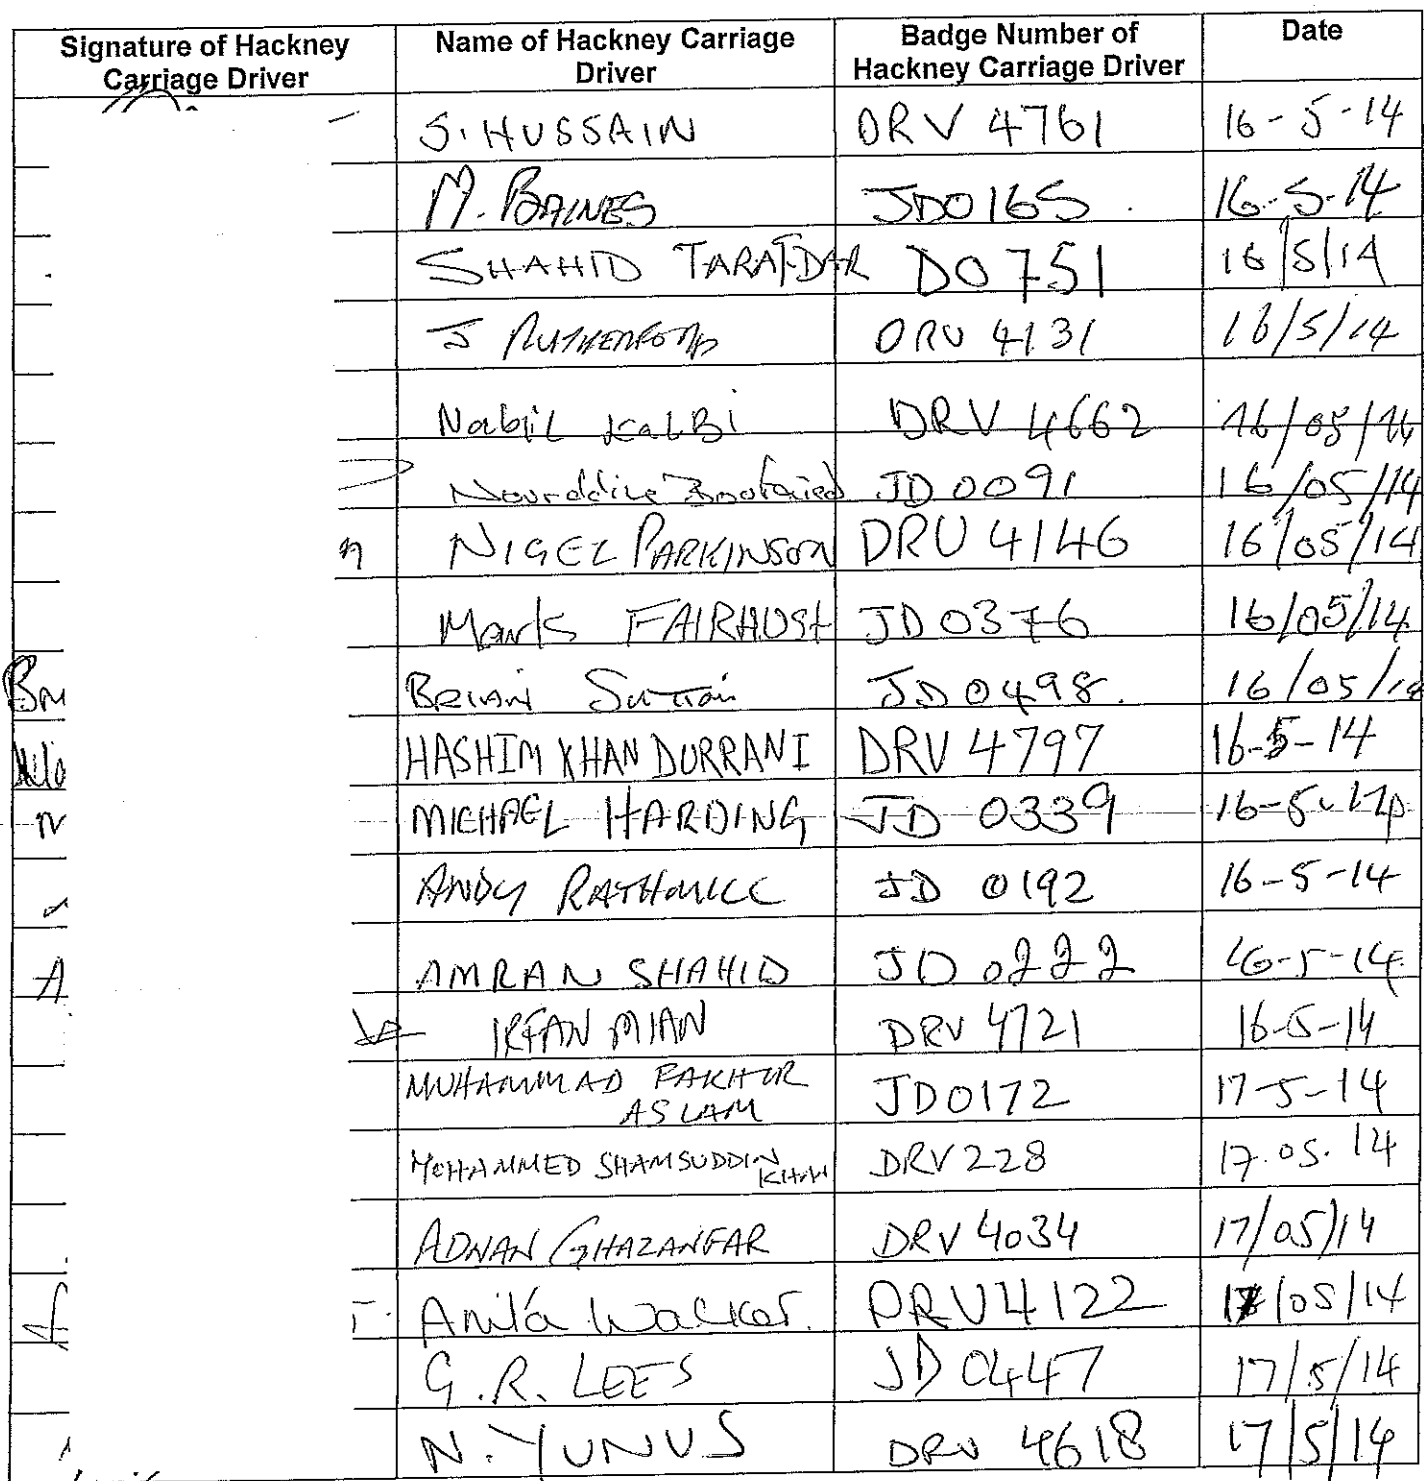 Signature of Hackney Carriage Driver Name of Hackney Carriage Driver Badge Number of Hackney Carriage Driver Date
S. HUSSAIN DRV 4761 16-5-14
M. BAINES JD0165 16-5-14
SHAHID TARAFDAR D0751 16/5/14
J RUTHERFORD DRV 4131 16/5/14
Nabil KalBi DRV 4662 16/05/14
Nourddine JD 0091 16/05/14
NIGEL PARKINSON DRV 4146 16/05/14
Mark FAIRHUST JD 0376 16/05/14
BRIAN Sutton JD 0498. 16/05/14
HASHIM KHAN DURRANI DRV 4797 16-5-14
MICHAEL HARDING JD 0339 16-5-14
ANDY RATHMILL JD 0192 16-5-14
AMRAN SHAHID JD 0222 16-5-14
IRFAN MIAN DRV 4721 16-5-14
MUHAMMAD FAKHIR ASLAM JD0172 17-5-14
MOHAMMED SHAMSUDDIN KHAN DRV 228 17.05.14
ADNAN GHAZANFAR DRV 4034 17/05/14
Anita Walker. DRV 4122 17/05/14
G.R. LEES JD 0447 17/5/14
N. YUNUS DRV 4618 17/5/14